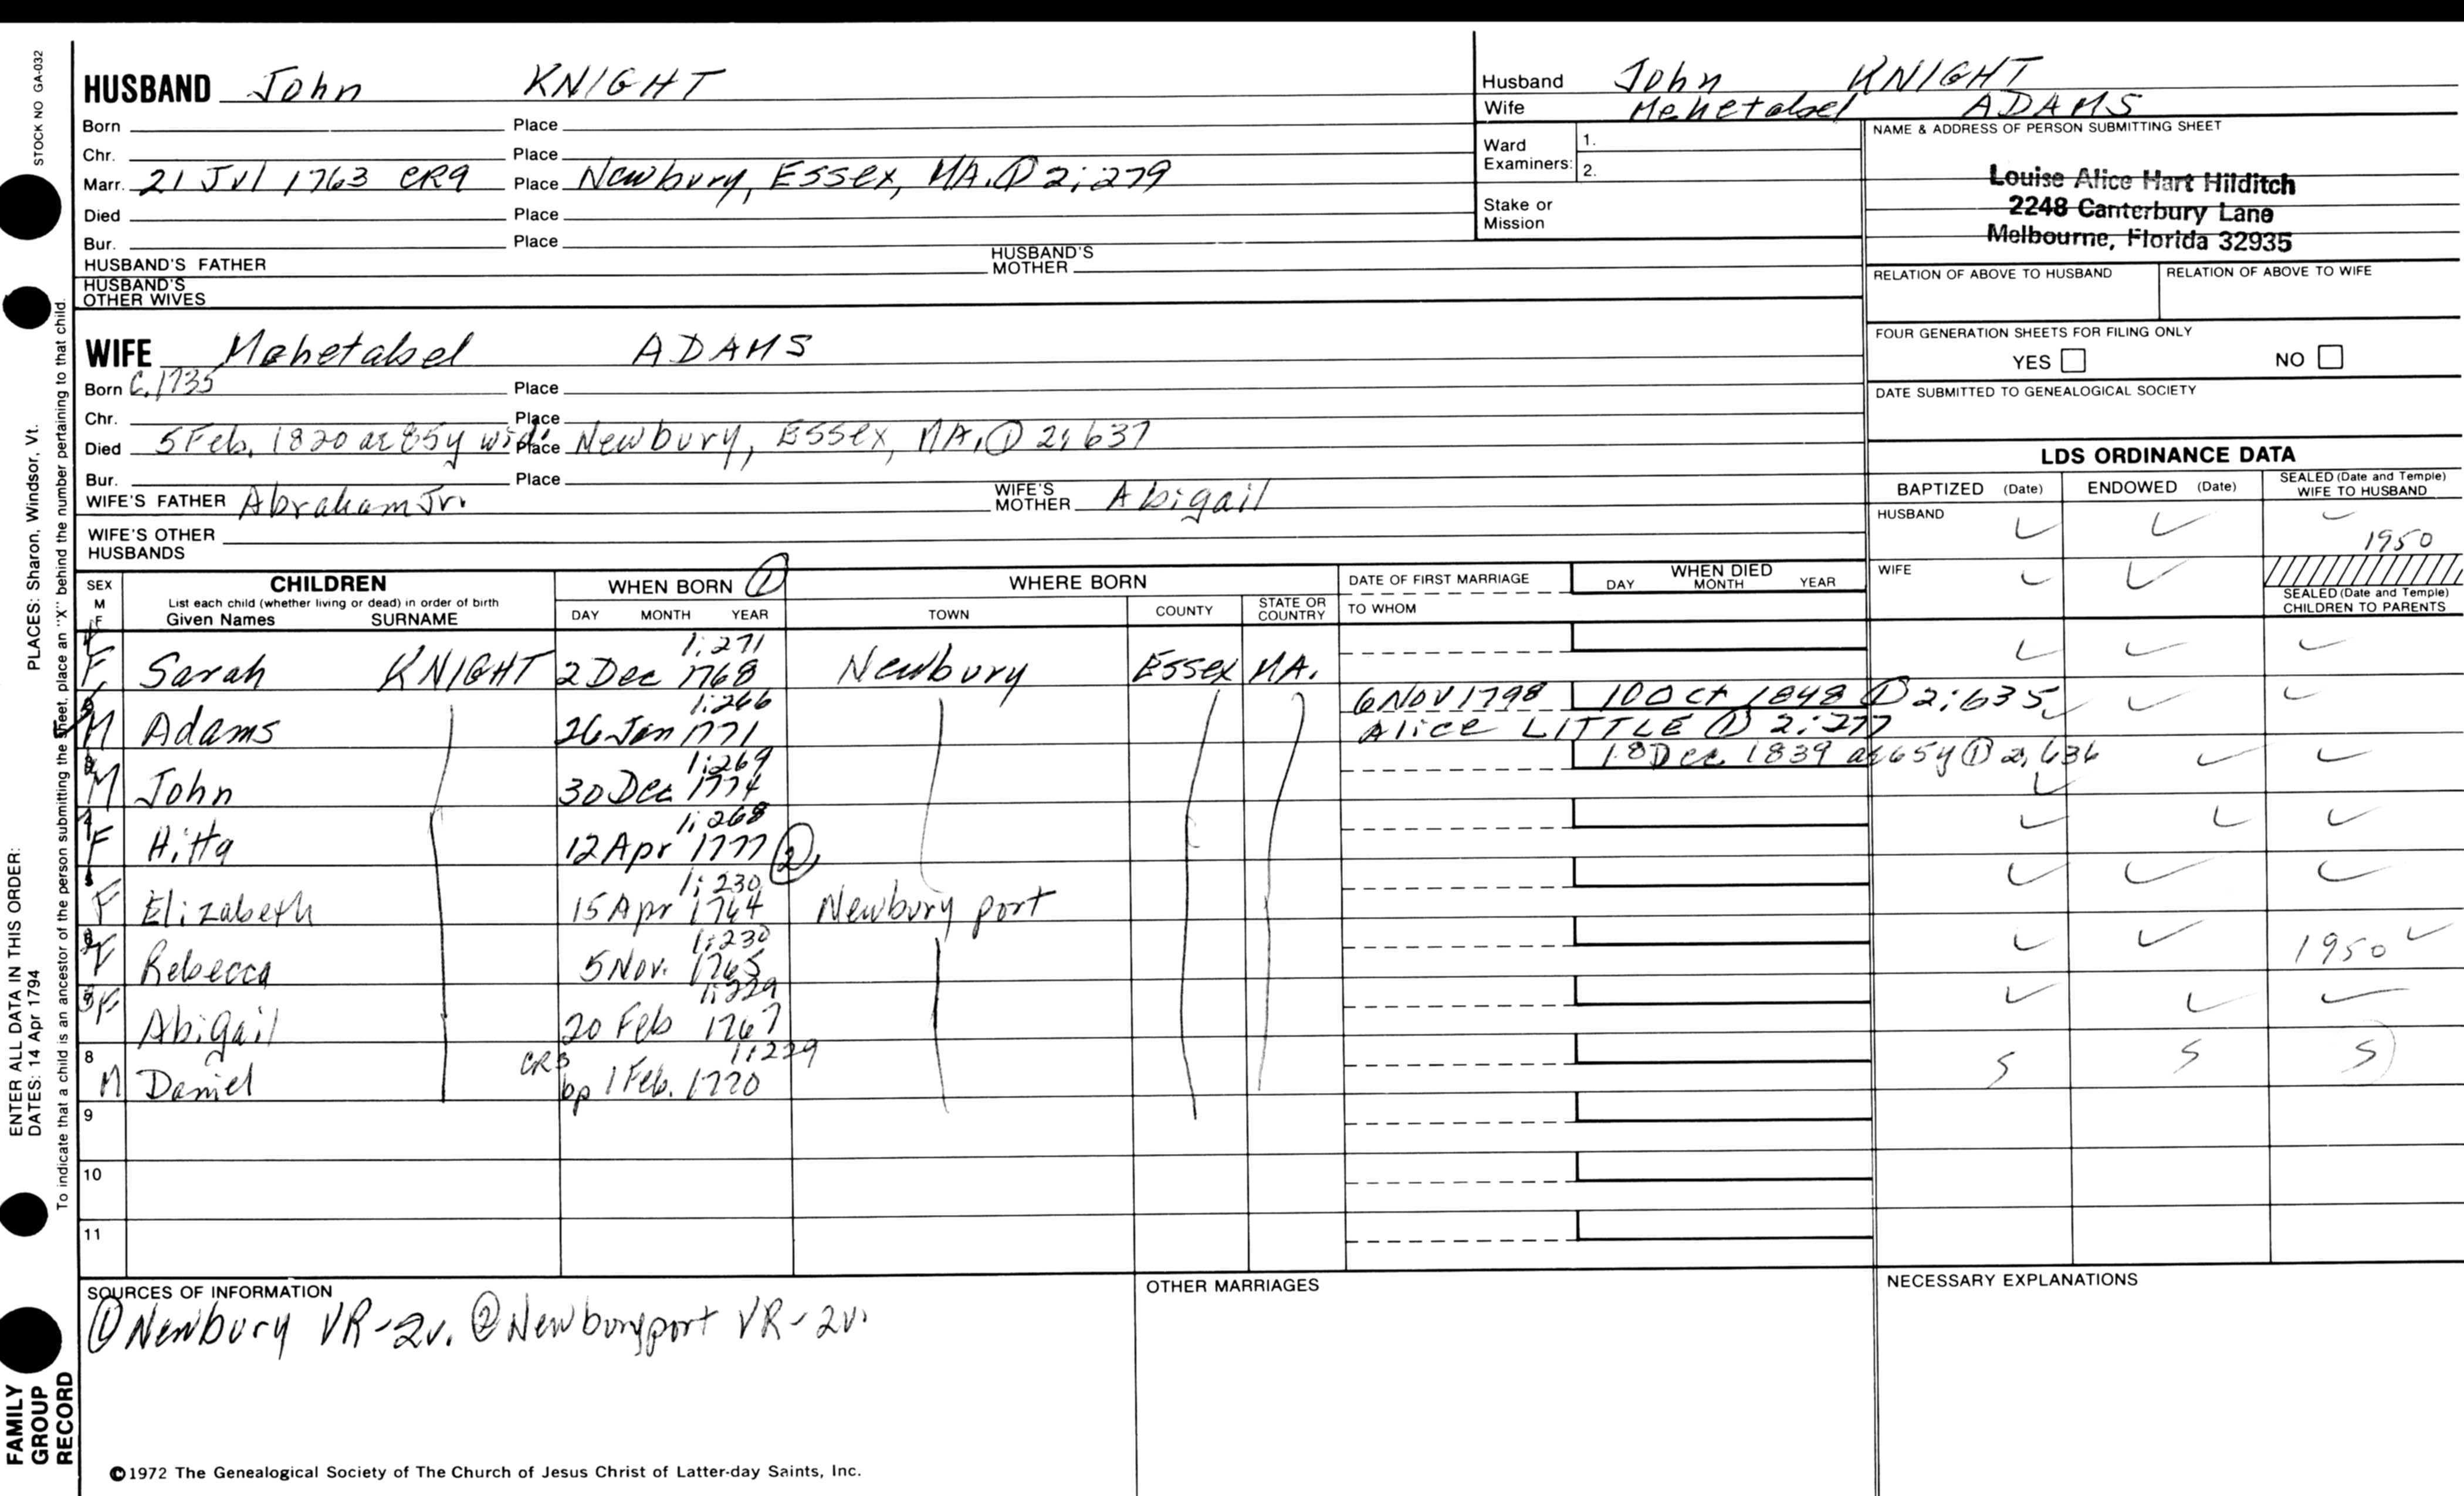 STOCK NO GA-032
PLACES: Sharon, Windsor, Vt.
ENTER ALL DATA IN THIS ORDER:
DATES: 14 Apr 1794
To indicate that a child is an ancestor of the person submitting the sheet, place an "X" behind the number pertaining to that child.
FAMILY
GROUP
RECORD
HUSBAND John KNIGHT
Born Place
Chr. Place
Marr. 21 Jul 1763 CR9 Place Newbury, Essex, MA. ① 2:279
Died Place
Bur. Place
HUSBAND'S FATHER HUSBAND'S MOTHER
HUSBAND'S
OTHER WIVES
Husband John KNIGHT
Wife Mehetabel ADAMS
Ward
Examiners:
1.
2.
Stake or
Mission
NAME & ADDRESS OF PERSON SUBMITTING SHEET
Louise Alice Hart Hilditch
2248 Canterbury Lane
Melbourne, Florida 32935
RELATION OF ABOVE TO HUSBAND RELATION OF ABOVE TO WIFE
FOUR GENERATION SHEETS FOR FILING ONLY
YES NO
DATE SUBMITTED TO GENEALOGICAL SOCIETY
WIFE Mehetabel ADAMS
Born C. 1735 Place
Chr. Place
Died 5 Feb. 1820 ae 85y wid. Place Newbury, Essex, MA. ① 2:637
Bur. Place
WIFE'S FATHER Abraham Jr. WIFE'S MOTHER Abigail
WIFE'S OTHER
HUSBANDS
LDS ORDINANCE DATA
BAPTIZED (Date) ENDOWED (Date) SEALED (Date and Temple) WIFE TO HUSBAND
HUSBAND ✓ ✓ ✓ 1950
WIFE ✓ ✓
SEALED (Date and Temple)
CHILDREN TO PARENTS
SEX
M
F
CHILDREN
List each child (whether living or dead) in order of birth
Given Names SURNAME
WHEN BORN ①
DAY MONTH YEAR
WHERE BORN
TOWN COUNTY STATE OR COUNTRY
DATE OF FIRST MARRIAGE
TO WHOM
WHEN DIED
DAY MONTH YEAR
1:271
F Sarah KNIGHT 2 Dec 1768 Newbury Essex MA. ✓ ✓ ✓
1:266 6 Nov 1798 10 Oct 1848 ① 2:635 ✓ ✓ ✓
M Adams 26 Jan 1771 Alice LITTLE ① 2:277
1:269 18 Dec. 1839 ae 65y ① 2:636 ✓ ✓
M John 30 Dec 1774 ✓
1:268
4 F Hitta 12 Apr 1777 ② ✓ ✓ ✓
1:230
F Elizabeth 15 Apr 1764 Newbury port ✓ ✓ ✓
1:230
F Rebecca 5 Nov. 1765 ✓ ✓ 1950 ✓
1:229
F Abigail 20 Feb 1767 ✓ ✓ ✓
8 CR3 1:229
M Daniel bp 1 Feb. 1770 S S S
9
10
11
SOURCES OF INFORMATION
① Newbury VR-2v. ② Newburyport VR-2v.
OTHER MARRIAGES
NECESSARY EXPLANATIONS
©1972 The Genealogical Society of The Church of Jesus Christ of Latter-day Saints, Inc.